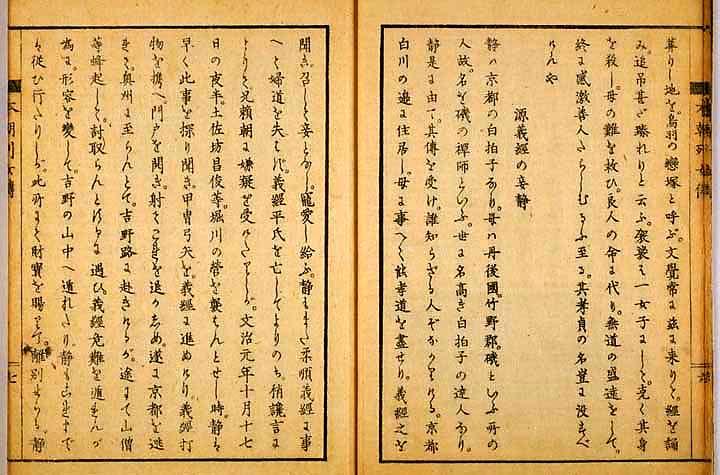 葬りし地を。鳥羽の戀塚と呼ぶ。文覺常に茲に來りて。經を誦
み。追吊甚だ臻れりと云ふ。袈裟を一女子にして。克く其身
を殺し。母の難を救ひ。良人の命に代り。無道の盛遠をして。
終に感激善人たらしむるに至る。其孝貞の名豈に沒すべ
けんや
源義經の妾靜
靜ハ京都の白拍子なり。母ハ丹後國。竹野郡。磯といふ所の
人故。名を磯の禪師といふ。世に名高き白拍子の達人なり。
靜是に由て。其傳を受け。誰知らざる人ぞなかりける。京都
白川の邊に住居し。母に事へて能孝道を盡せり。義經之を
聞き。召して妾となし。寵愛し給ふ。靜もまた柔順義經に事
へて婦道を失はず。義經平氏を亡してよりのち。梢讒言に
よりて兄賴朝に嫌疑を受けたりしが。文治元年十月十七
日の夜半。土佐坊昌俊等。堀川の營を襲はんとせし時。靜ハ
早く此事を探り聞き。甲冑弓矢を。義經に進めけり。義經打
物を携へ門戸を開き。射てこれを退かしめ。遂に京都を逃
れて。奥州に至らんとて。吉野路に赴きけるが。途にて山僧
等蜂起して。討取らんとけるに遇ひ。義經危難を遁れんが
爲に。形容を變して。吉野の山中へ遁れたり。靜もこれまで
ハ從ひ行たりしが。此所にて財寶を賜はり。離別せらる。靜
本朝列女傳
七